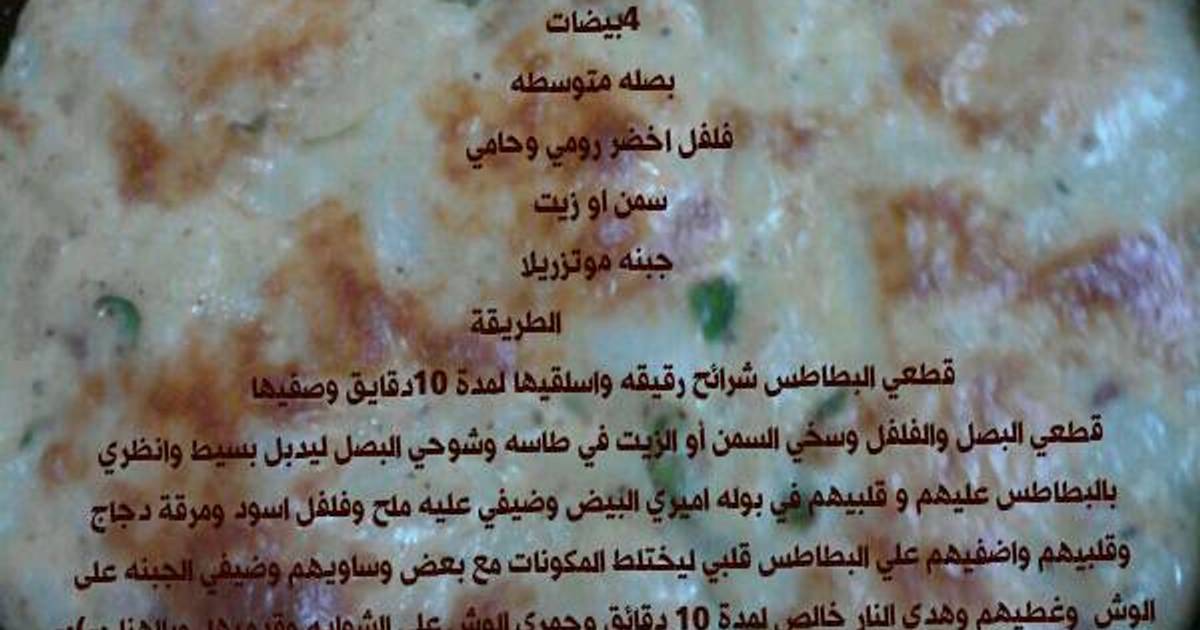 4بيضات
بصله متوسطه
فلفل اخضر رومي وحامي
سمن او زيت
جبنه موتزريلا
الطريقة
قطعي البطاطس شرائح رقيقه واسلقيها لمدة 10دقايق وصفيها
قطعي البصل والفلفل وسخي السمن أو الزيت في طاسه وشوحي البصل ليدبل بسيط وانظري
بالبطاطس عليهم و قلبيهم في بوله اميري البيض وضيفي عليه ملح وفلفل اسود ومرقة دجاج
وقلبيهم واضفيهم علي البطاطس قلبي ليختلط المكونات مع بعض وساويهم وضيفي الجبنه على
الوش وغطيهم وهدي النار خالص لمدة 10 دقائق وحمري الوش على الشوايه وقدميها وبالهنا